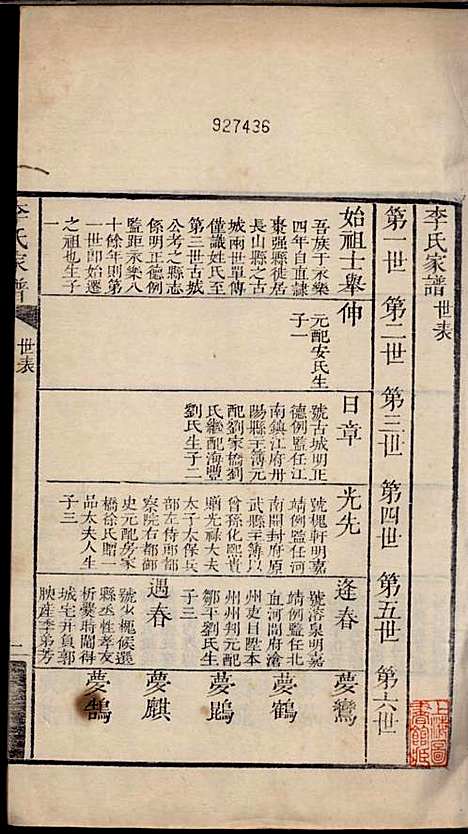 927436
李氏家譜 世表
第一世 第二世 第三世 第四世 第五世 第六世
始祖士舉
吾族于永樂
四年自直隸
棗強縣徙居
長山縣之古
城兩世單傳
僅識姓氏至
第三世古城
公考之縣志
係明正德例
監距永樂八
十餘年則第
一世即始遷
之祖也生子
一
仲
元配安氏生
子一
日章
號古城明正
德例監任江
南鎮江府丹
陽縣主簿元
配劉家橋劉
氏繼配海豐
劉氏生子二
光先
號槐軒明嘉
靖例監任河
南開封府原
武縣主簿以
曾孫化熙貴
贈光祿大夫
太子太保兵
部左侍郎都
察院右都御
史元配房家
橋徐氏贈一
品太夫人生
子三
逢春
號溶泉明嘉
靖例監任北
直河間府滄
州吏目陞本
州州判元配
鄒平劉氏生
子三
遇春
號少槐候選
縣丞性孝友
析爨時闇得
城宅并負郭
腴產季弟芳
夢鸞
夢鶴
夢鵾
夢麒
夢鵠
李氏家譜
世表
一
上海圖
書館藏